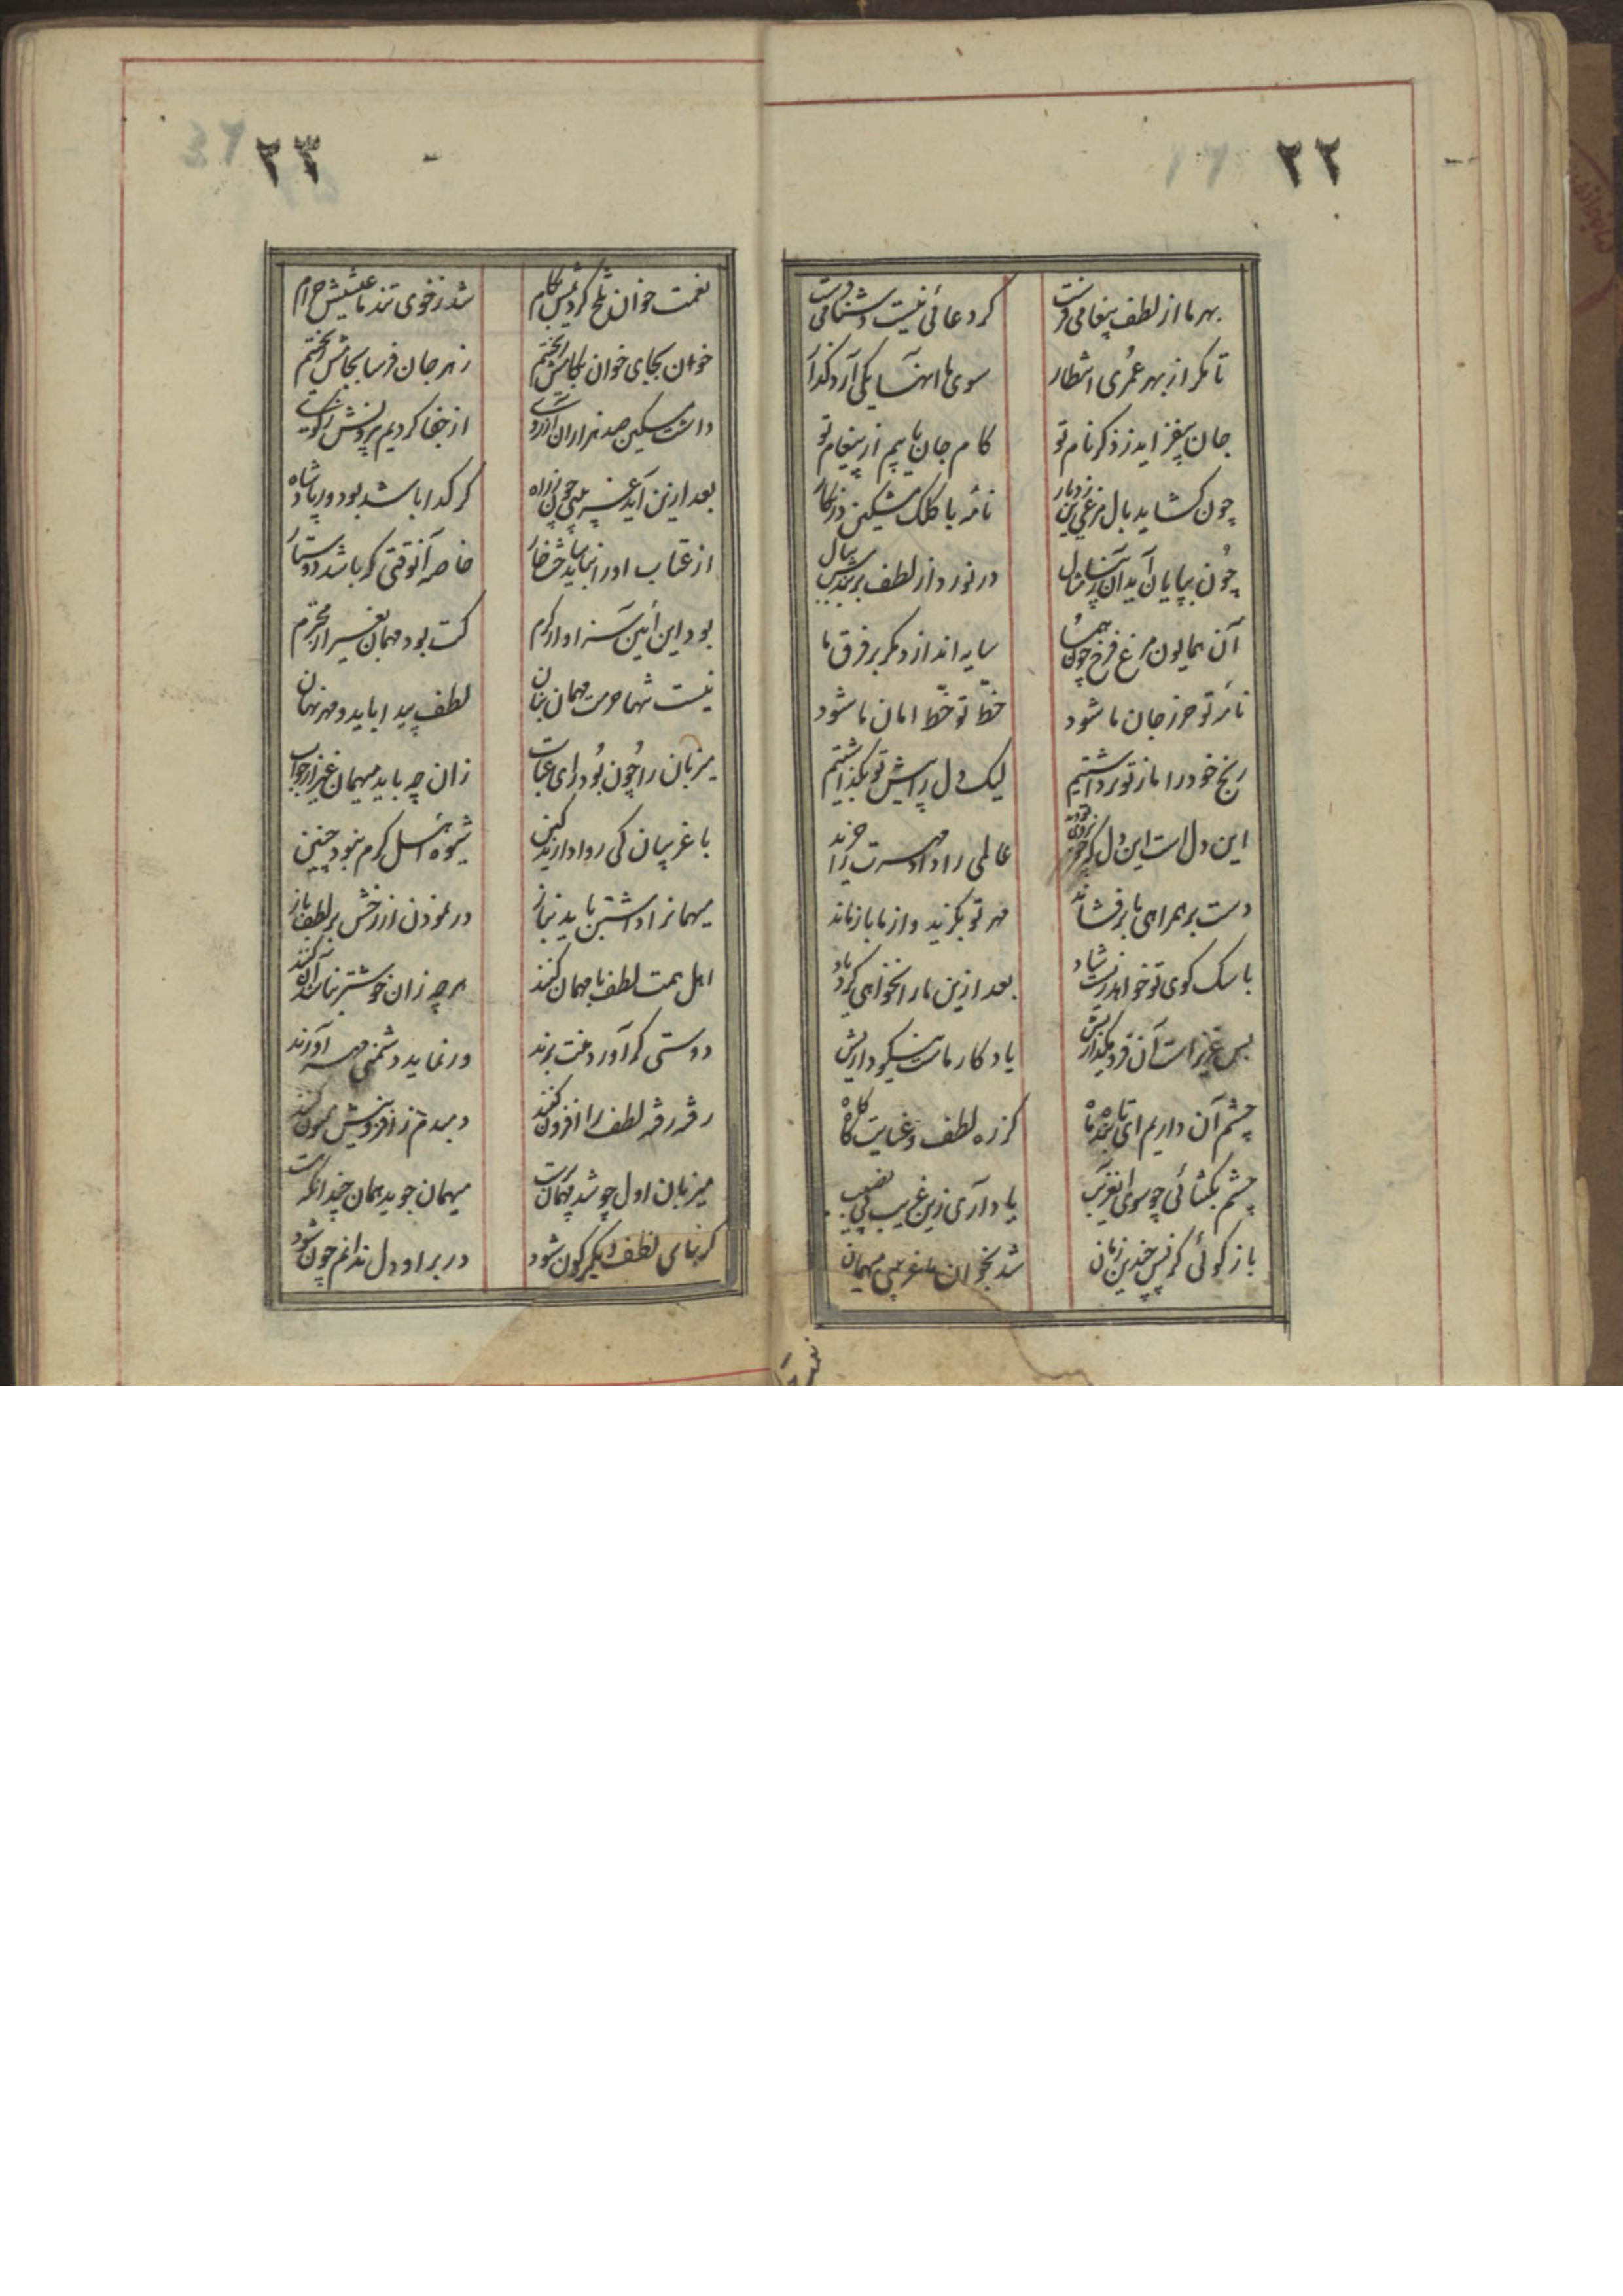 ۲۲
بهر ما از لطف پیغامی فرست گر دعائی نیست دشنامی فرست
تا مگر از بهر عمری انتظار سوی ما اینها یکی آرد گذار
جان بیفزاید ز ذکر نام تو کام جان یابیم از پیغام تو
چون گشاید بال مرغی زین دیار نامه با کلک مشکین در نگار
چون بپایان آید آن در نورد از لطف بر بال
آن همایون مرغ فرخ چون هما سایه اندازد مگر بر فرق ما
نامه تو حرز جان ما شود خط تو خط امان ما شود
رنج خود را ما ز تو برداشتیم لیک دل را پیش تو بگذاشتیم
این دل است این دل که عالمی را داد و مهرت را خرید
دست بر همراهی ما برفشاند مهر تو بگزید و از ما باز ماند
با سگ کوی تو خواهد زیست شاد بعد ازین ما را نخواهی کرد یاد
بس عزیز است آن فرو مگذاریش یادگار ماست نیکو داریش
چشم آن داریم ای تابنده ماه کز ره لطف و عنایت گاه گاه
چشم بگشائی چو سوی این غریب یاد آری زین غریب بی نصیب
باز گوئی کز پس چندین زمان شد بخوان ما غریبی میهمان
۲۳
نعمت خوان تلخ کردیمش بکام شد ز خوی تند ما عیشش حرام
خون بجای خوان بکامش ریختیم زهر جان فرسا بجامش ریختیم
داشت مسکین صد هزاران آرزوی از جفا کردیم بیرونش ز کوی
بعد ازین آید غریبی چون ز راه گر گدا باشد بود ور پادشاه
از عتاب او را نباید خست خار خاصه آنوقتی که باشد دوستار
بود این آئین سزاوار کرم کت بود مهمان بغیر از محترم
نیست تنها حرمت مهمان بنان لطف پیدا باید و مهر نهان
میزبان را چون بود رای عتاب زان چه باید میهمان غیر از جواب
با غریبان کی روا دارند کین شیوه اهل کرم نبود چنین
میهمانرا داشتن باید بناز در نمودن از رخش بر لطف باز
اهل همت لطف با مهمان کنند هر چه زان خوشتر نباشد آن کنند
دوستی گر آورد منت برند ور نماید دشمنی مهر آورند
رفته رفته لطف را افزون کنند دمبدم ز افزونیش ممنون کنند
میزبان اول چو شد مهمان پرست میهمان جوید همان چندانکه هست
گر بنای لطف دیگرگون شود در بر او دل ندانم چون شود